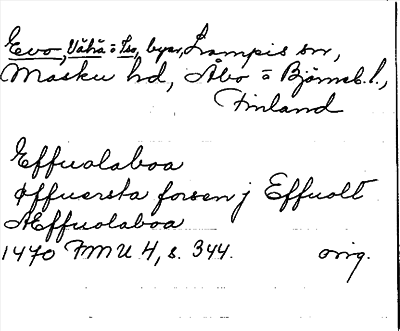 Evo, Vähä o Iso, byar, Lampis sn,
Masku hd, Åbo o Björneb. l.,
Finland
Effuolaboa
øffuersta forsen j Effuolt
Æffuolaboa
1470 FMU 4, s. 344. orig.